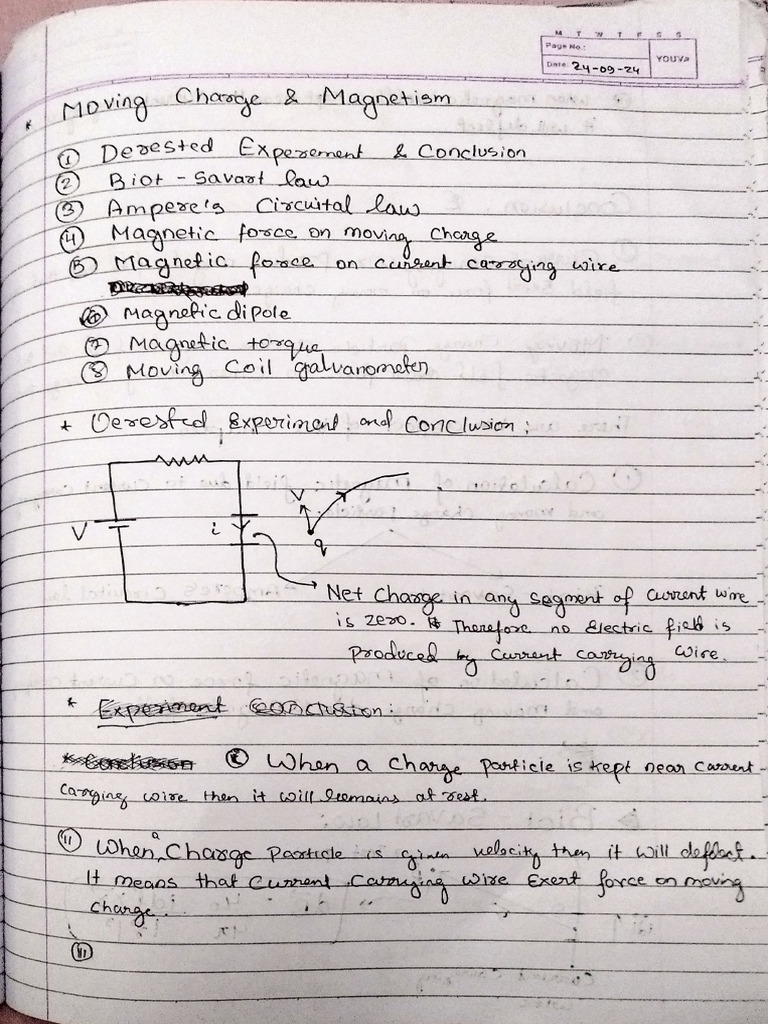 M T W T F S S
Page No.:
Date: 24-09-24
YOUVA
* Moving Charge & Magnetism
① Derested Experement & Conclusion
② Biot - Savart law
③ Ampere's Circuital law
④ Magnetic force on moving charge
⑤ Magnetic force on current carrying wire
⑥ Magnetic dipole
⑦ Magnetic torque
⑧ Moving Coil galvanometer
* Oerested Experiment and Conclusion:
V
i
V
q
Net Charge in any segment of current wire
is zero. Therefore no Electric field is
produced by current carrying wire.
* Experiment Conclusion:
ⓘ When a Charge particle is kept near current
carrying wire then it will remains at rest.
ⓘⓘ When a Charge Particle is given velocity then it will deflect.
It means that current carrying wire Exert force on moving
charge.
ⓘⓘⓘ